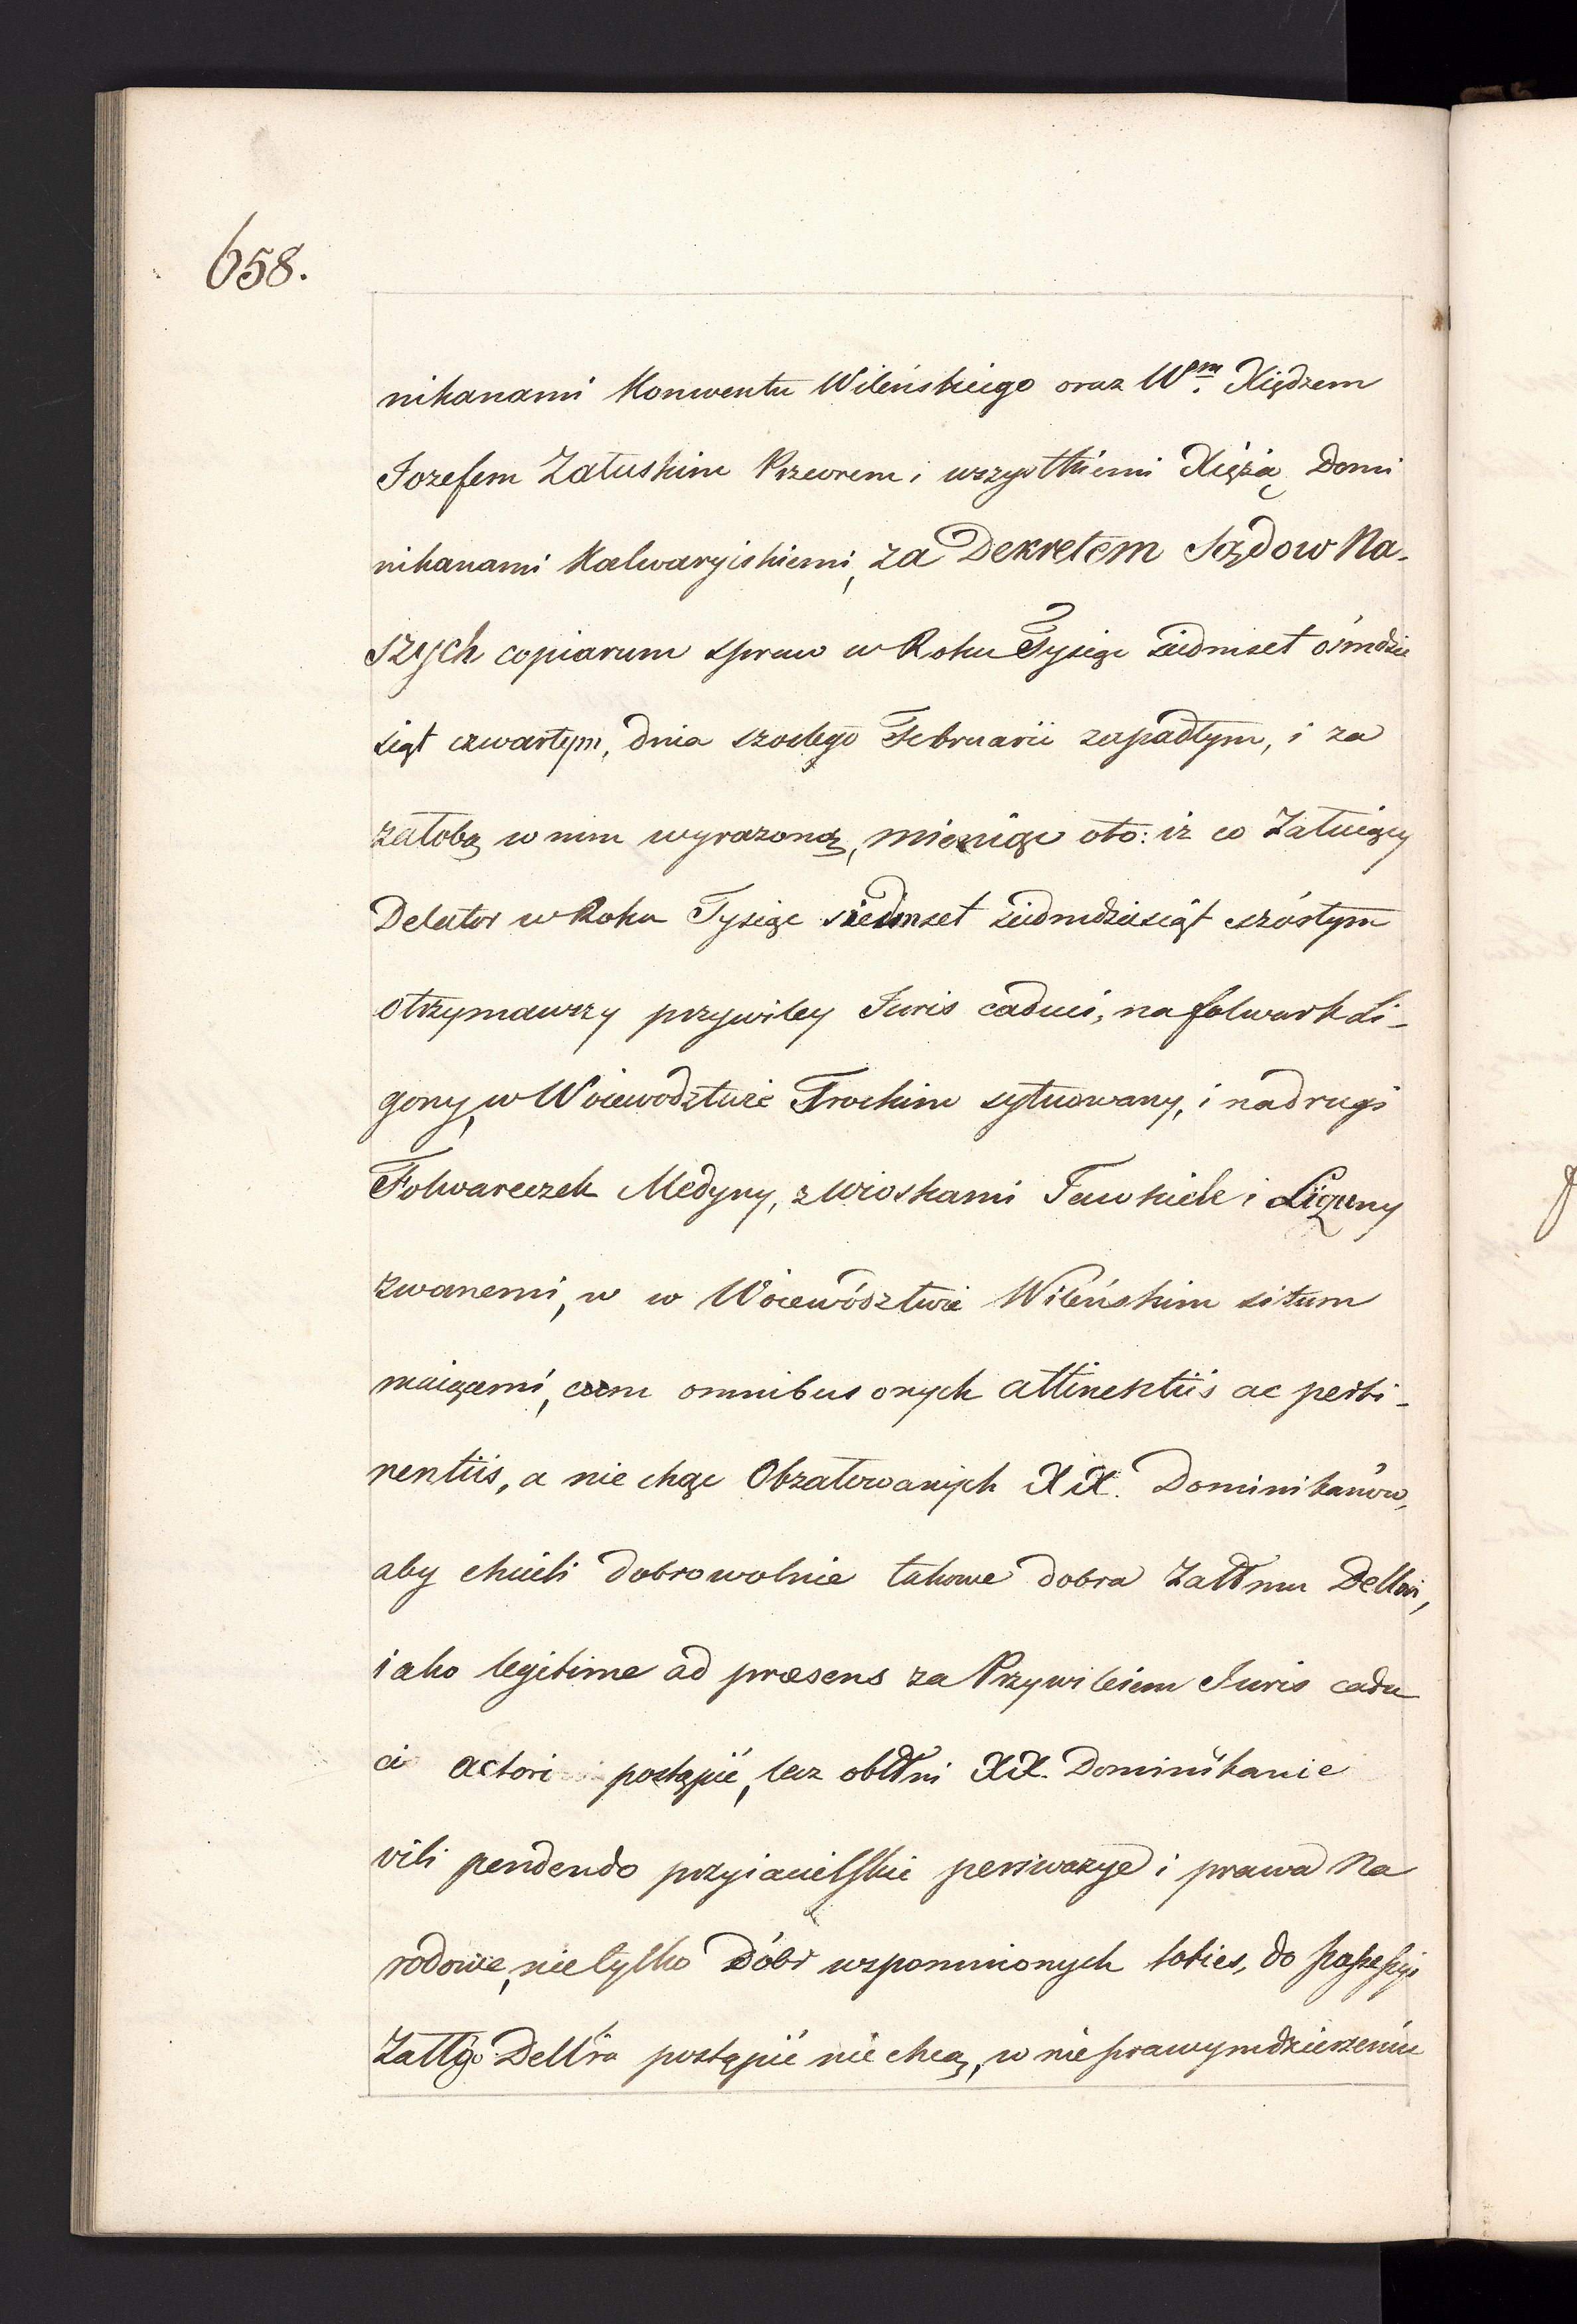 658.
nikanami Konwentu Wileńskiego oraz Wm. Xiędzem
Jozefem Załuskim Przeorem i wszystkiemi Xiężą Domi
nikanami Kalwaryiskiemi, za Dekretem Sądow Na-
szych copiarum spraw w Roku Tysiąc siedmset ośmdzie
siąt czwartym, dnia szostego Februarii zapadłym, i za
żałobą w nim wyrazoną, mieniąc oto: iż co Żałuiący
Delator w Roku Tysiąc siedmset siedmdziesiąt szóstym
otrzymawszy przywiley Juris caduci, na folwark Li-
gony, w Woiewodztwie Trockim sytuowany, i na drugi
Folwarczek Medyny, z wioskami Fawkiele i Liguny
zwanemi, w w Woiewództwie Wileńskim situm
maiącemi, cum omnibus onych attinentiis ac perti-
nentiis, a nie chąc Obżałowanych XX. Dominikanów,
aby chcieli dobrowolnie takowe dobra Żałłmu Dellowi,
iako legitime ad praesens za Przywileiem Juris cadu
ci actori postąpić, lecz obłłni XX. Dominikanie
vili pendendo przyiacielskie perswazye i prawa Na
rodowe, nie tylko Dóbr wspomnionych toties, do possessyi
Żałłgo Dellra postąpić nie chcą, w nieprawym dzierzeniu